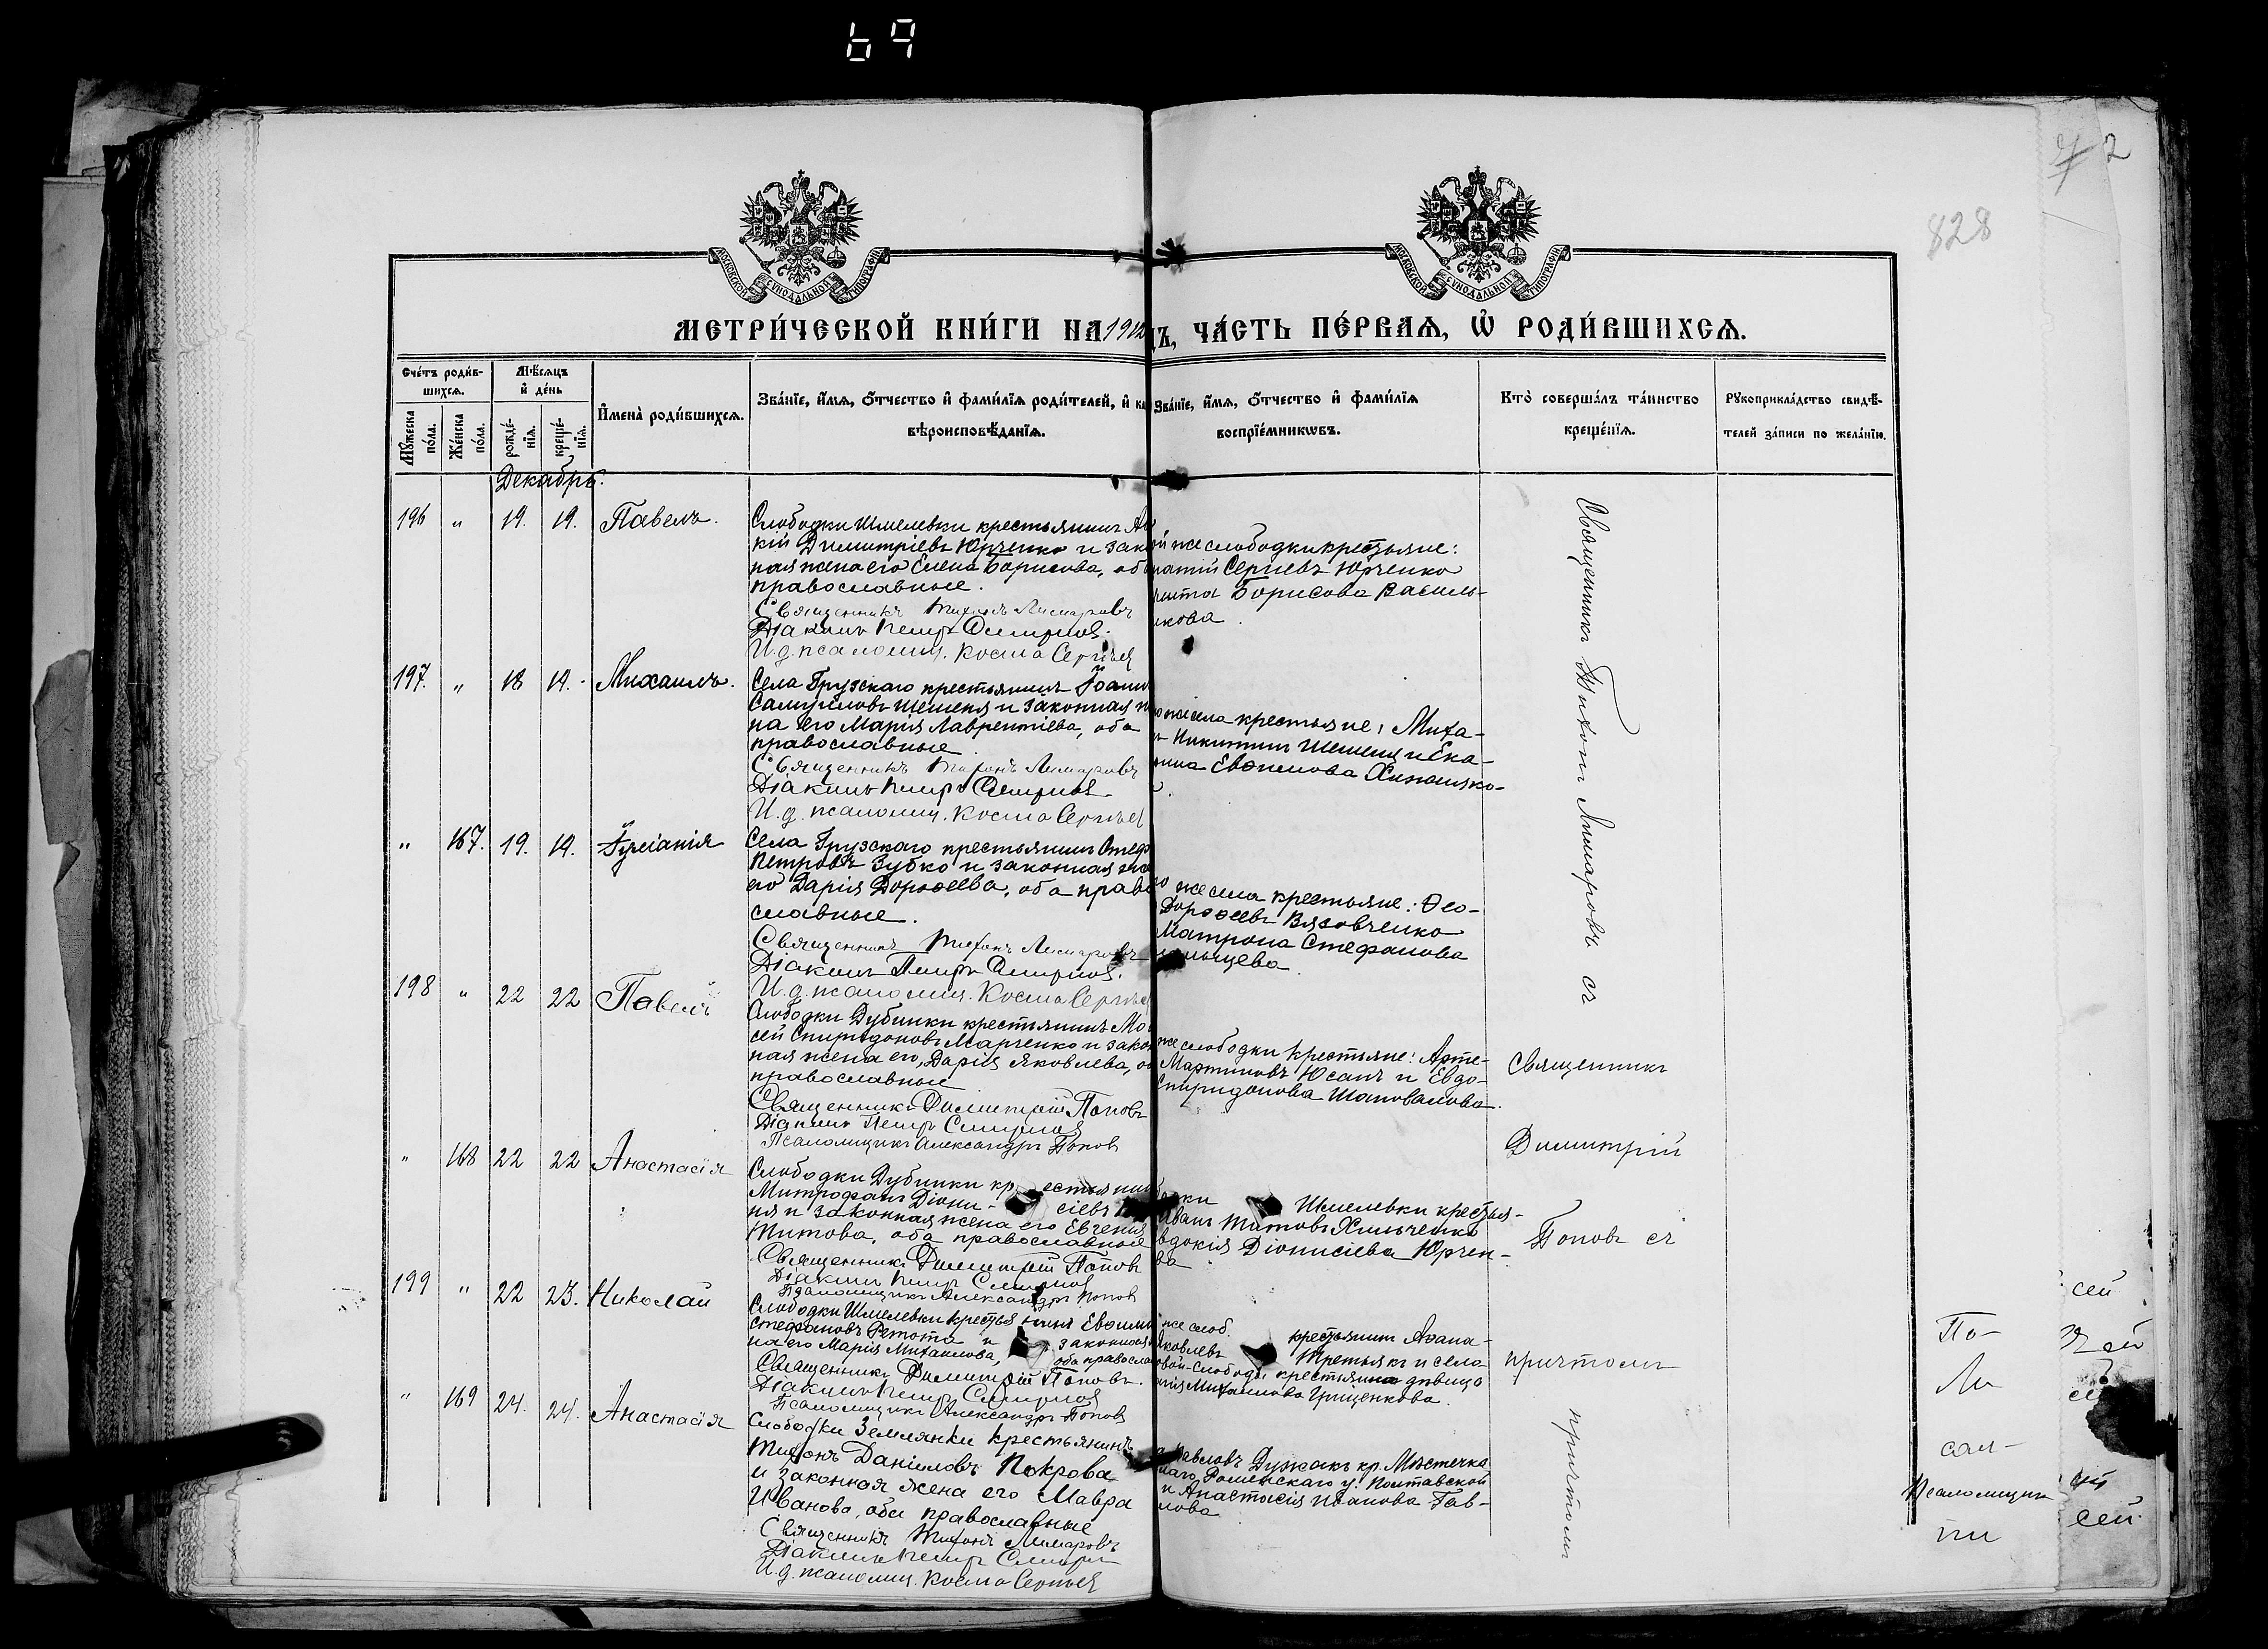 69
72
828
МОСКОВСКОЙ СѴНОДАЛЬНОЙ ТИПОГРАФІИ
МОСКОВСКОЙ СѴНОДАЛЬНОЙ ТИПОГРАФІИ
МЕТРИ́ЧЕСКОЙ КНИ́ГИ НА 1912
Ъ, ЧА́СТЬ ПЕ́РВАѦ, Ѡ҆ РОДИ́ВШИХСѦ.
Сче́тъ роди́в-
шихсѧ.
Мꙋ́жеска по́ла.
Же́нска по́ла.
Мѣ́сѧцъ
и҆ де́нь
рожде́-
нїѧ.
креще́-
нїѧ.
И҆мена̀ роди́вшихсѧ.
Зва́нїе, и҆́мѧ, ѻ҆́тчество и҆ фами́лїѧ роди́телей, и҆ ка
вѣроисповѣ́данїѧ.
Зва́нїе, и҆́мѧ, ѻ҆́тчество и҆ фами́лїѧ
воспрїе́мникѡвъ.
Кто̀ соверша́лъ та́инство
креще́нїѧ.
Рꙋкоприкла́дство свидѣ́-
телей за́писи по жела́нїю.
Декабрь.
196 " 19. 19. Павелъ.
Слободки Шмелевки крестьянинъ
кій Димитріевъ Юрченко и зако
ная жена его Елена Борисова, об
православные.
Священникъ Тихонъ Лимаровъ
Діаконъ Петръ Смирнов.
И. д. псаломщ. Косма Сергѣев
й же слободки крестьяне:
натій Сергіевъ Юрченко
Борисова Василь-
икова.
197. " 18 19. Михаилъ.
Села Грузскаго крестьянинъ Іоанн
Самуиловъ Шешеня и законная ж
на его Марія Лаврентіева, оба
православные
Священникъ Тихонъ Лимаровъ
Діаконъ Петръ Смирнов
И. д. псаломщ. Косма Сергѣев
же села крестьяне: Миха-
Никитинъ Шешеня и Ека-
рина Евѳимова
" 167. 19. 19. Іуліанія
Села Грузскаго крестьянинъ Стеф
Петровъ Зубко и законная же
его Дарія Дороѳеева, оба право
славные.
Священникъ Тихонъ Лимаровъ
Діаконъ Петръ Смирнов.
И. д. псаломщ. Косма Сергѣев
же села крестьяне: Ѳео-
Дороѳеевъ Вязовченко
Матрона Стефанова
198 " 22 22 Павелъ
Слободки Дубинки крестьянинъ Мо
сей Спиридоновъ Марченко и закон
ная жена его, Дарія Яковлева, об
православные
Священникъ Димитрій Поповъ
Діаконъ Петръ Смирнов
Псаломщикъ Александръ Попов
же слободки крестьяне: Арте-
Мартиновъ Юсанъ и Евдо-
Спиридонова Шаповалова.
" 168 22 22 Анастасія
Слободки Дубинки крестьянин
Митрофанъ Діони-сіевъ
ня и законная жена его Евгенія
Титова, оба православные
Священникъ Димитрій Поповъ
Діаконъ Петръ Смирнов
Псаломщикъ Александръ Попов
Шмелевки крестья-
Иванъ Титовъ Хильченко
вдокія Діонисіева Юрчен-
ва
199 " 22 23. Николай
Слободки Шмелевки крестьянинъ Евѳим
Стефановъ Ретота и законная
на его Марія Михаилова, оба правосла
Священникъ Димитрій Поповъ.
Діаконъ Петръ Смирнов
Псаломщикъ Александръ Попов
же слоб. крестьянин Аѳана-
Яковлевъ Третьякъ и села
слободы крестьянка дѣвица
рія Михаилова Грищенкова.
" 169 24. 24. Анастасія
Слободки Землянки крестьянинъ
Тихонъ Даніиловъ Покрова
и законная жена его Мавра
Иванова, оба православные
Священникъ Тихонъ Лимаровъ
Діаконъ Петръ Смирн
И. д. псаломщ. Косма Сергѣев
Павловъ Дужакъ кр. Мѣстечка
наго, Роменскаго у. Полтавской
и Анастасія Иванова Гав-
лова
Священникъ Тихонъ Лимаровъ съ
причтомъ
Священникъ
Димитрій
Поповъ съ
причтомъ
По-
Ли
сал-
Псаломщик
сей
сей